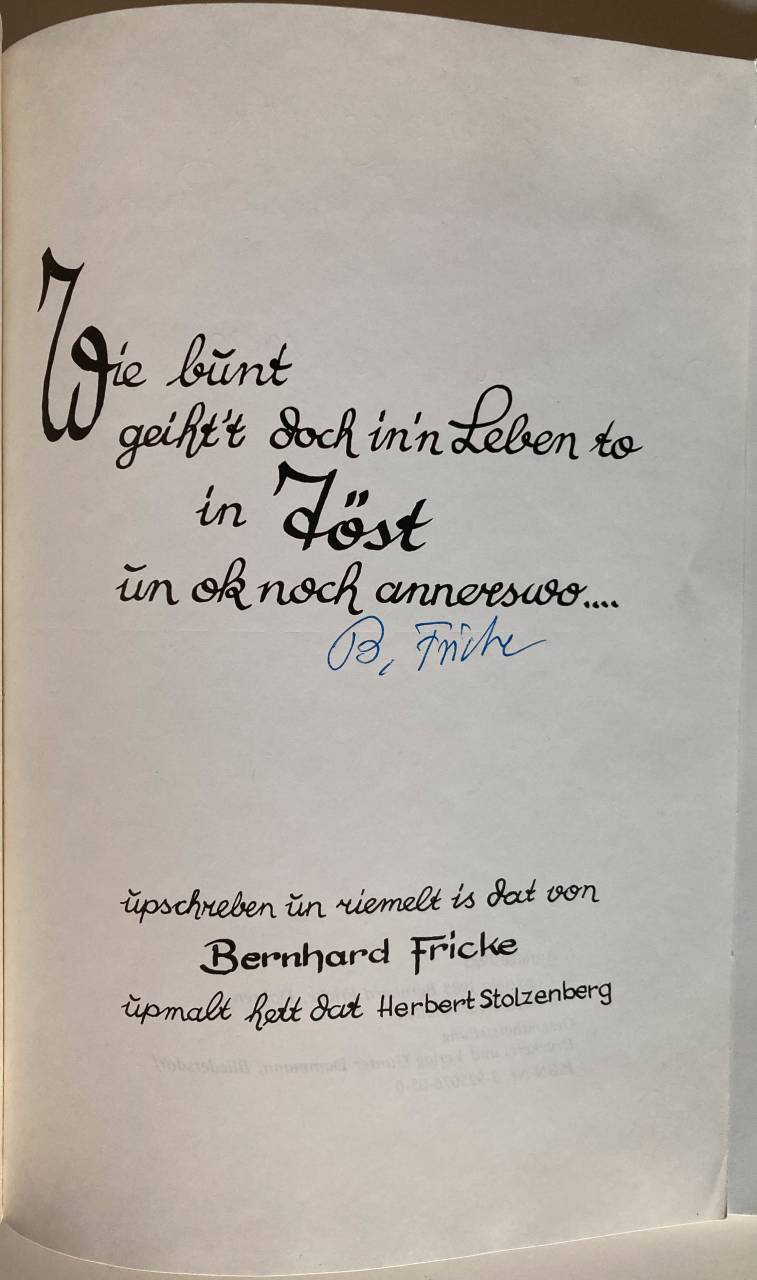 Wie bunt
geiht't doch in'n Leben to
in Töst
un ok noch annerswo....
B. Fricke
upschreben un riemelt is dat von
Bernhard Fricke
upmalt hett dat Herbert Stolzenberg